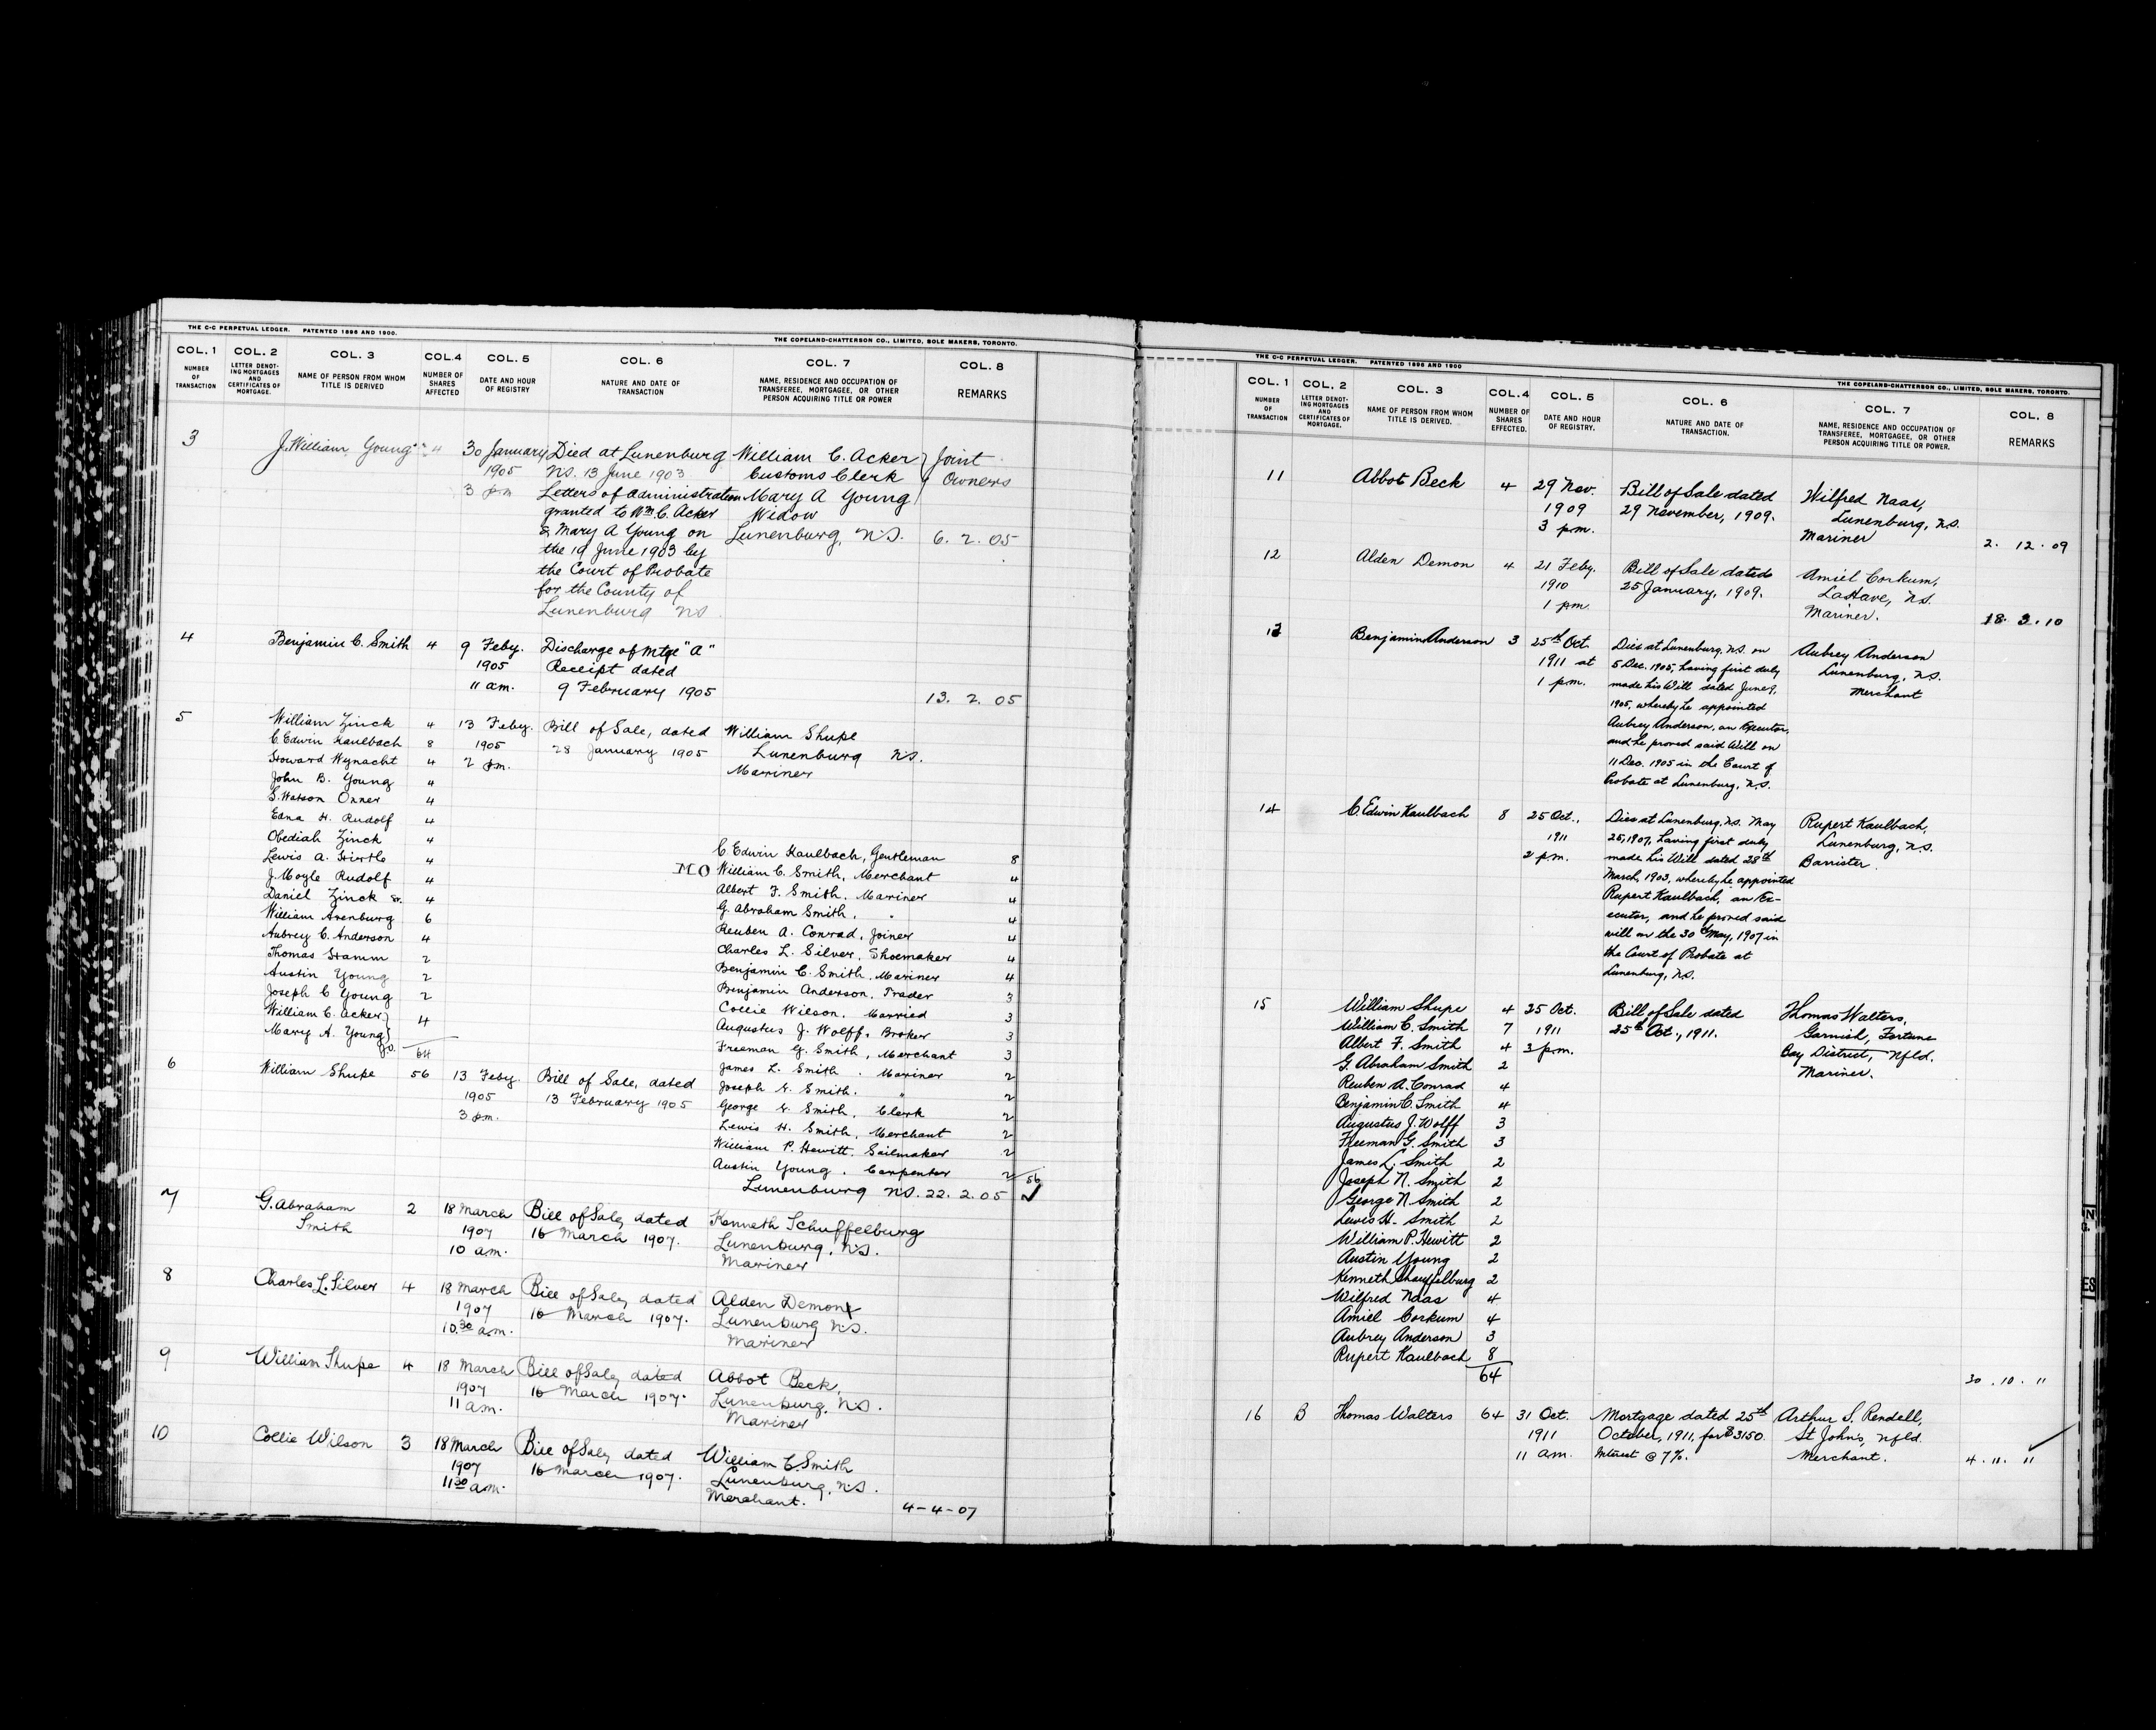 THE C-C PERPETUAL LEDGER. PATENTED 1896 AND 1900.
THE COPELAND-CHATTERSON CO., LIMITED, SOLE MAKERS, TORONTO.
COL. 1 COL. 2 COL. 3 COL. 4 COL. 5 COL. 6 COL. 7 COL. 8
NUMBER OF TRANSACTION
LETTER DENOTING MORTGAGES AND CERTIFICATES OF MORTGAGE.
NAME OF PERSON FROM WHOM TITLE IS DERIVED
NUMBER OF SHARES AFFECTED
DATE AND HOUR OF REGISTRY
NATURE AND DATE OF TRANSACTION
NAME, RESIDENCE AND OCCUPATION OF TRANSFEREE, MORTGAGEE, OR OTHER PERSON ACQUIRING TITLE OR POWER
REMARKS
3 J. William Young 4 30 January Died at Lunenburg William C. Acker } Joint
1905 N.S. 13 June 1903 Customs Clerk Owners
3 pm Letters of administration Mary A Young
granted to Wm. C. Acker Widow
& Mary A Young on Lunenburg, N.S. 6. 2. 05
the 19 June 1903 by
the Court of Probate
for the County of
Lunenburg NS
4 Benjamin C. Smith 4 9 Feby. Discharge of Mtge "A"
1905 Receipt dated
11 am. 9 February 1905 13. 2. 05
5 William Zinck 4 13 Feby. Bill of Sale, dated William Shupe
C. Edwin Kaulbach 8 1905 28 January 1905 Lunenburg N.S.
Howard Wynacht 4 2 pm. Mariner
John B. Young 4
S. Watson Oxner 4
Edna H. Rudolf 4
Obediah Zinck 4
Lewis A. Hirtle 4
J. Moyle Rudolf 4
Daniel Zinck Sr. 4
William Arenburg 6
Aubrey C. Anderson 4
Thomas Hamm 2
Austin Young 2
Joseph C Young 2
William C. Acker }
Mary A. Young } J.O. 4
64
6 William Shupe 56 13 Feby. Bill of Sale, dated
1905 13 February 1905
3 pm.
C. Edwin Kaulbach, Gentleman 8
MO William C. Smith, Merchant 4
Albert F. Smith, Mariner 4
G. Abraham Smith, " 4
Reuben A. Conrad, Joiner 4
Charles L. Silver, Shoemaker 4
Benjamin C. Smith, Mariner 4
Benjamin Anderson, Trader 3
Collie Wilson, Married 3
Augustus J. Wolff, Broker 3
Freeman G. Smith, Merchant 3
James L. Smith, Mariner 2
Joseph N. Smith, " 2
George N. Smith, Clerk 2
Lewis H. Smith, Merchant 2
William P. Hewitt, Sailmaker 2
Austin Young, Carpenter 2 56
Lunenburg N.S. 22. 2. 05
7 G. Abraham 2 18 March Bill of Sale, dated Kenneth Schuffelburg
Smith 1907 16 March 1907. Lunenburg, N.S.
10 am. Mariner
8 Charles L. Silver 4 18 March Bill of Sale, dated Alden Demone
1907 16 March 1907. Lunenburg N.S.
10.30 am. Mariner
9 William Shupe 4 18 March Bill of Sale, dated Abbot Beck,
1907 16 March 1907. Lunenburg, N.S.
11 am. Mariner
10 Collie Wilson 3 18 March Bill of Sale, dated William C. Smith
1907 16 March 1907. Lunenburg, N.S.
11.30 am. Merchant. 4-4-07
THE C-C PERPETUAL LEDGER. PATENTED 1896 AND 1900
THE COPELAND-CHATTERSON CO., LIMITED, SOLE MAKERS, TORONTO.
COL. 1 COL. 2 COL. 3 COL. 4 COL. 5 COL. 6 COL. 7 COL. 8
NUMBER OF TRANSACTION
LETTER DENOTING MORTGAGES AND CERTIFICATES OF MORTGAGE.
NAME OF PERSON FROM WHOM TITLE IS DERIVED.
NUMBER OF SHARES EFFECTED.
DATE AND HOUR OF REGISTRY.
NATURE AND DATE OF TRANSACTION.
NAME, RESIDENCE AND OCCUPATION OF TRANSFEREE, MORTGAGEE, OR OTHER PERSON ACQUIRING TITLE OR POWER.
REMARKS
11 Abbot Beck 4 29 Nov. Bill of Sale dated Wilfred Naas,
1909 29 November, 1909. Lunenburg, N.S.
3 pm. Mariner 2. 12. 09
12 Alden Demon 4 21 Feby. Bill of Sale dated Amiel Corkum,
1910 25 January, 1909. LaHave, N.S.
1 pm. Mariner. 18. 3. 10
13 Benjamin Anderson 3 25th Oct. Died at Lunenburg, N.S. on Aubrey Anderson
1911 at 5 Dec. 1905, having first duly Lunenburg, N.S.
1 pm. made his Will dated June 9, Merchant
1905, whereby he appointed
Aubrey Anderson, an Executor,
and he proved said Will on
11 Dec. 1905 in the Court of
Probate at Lunenburg, N.S.
14 C. Edwin Kaulbach 8 25 Oct., Died at Lunenburg, N.S. May Rupert Kaulbach,
1911 25, 1907, having first duly Lunenburg, N.S.
2 pm. made his Will dated 28th Barrister.
March, 1903, whereby he appointed
Rupert Kaulbach, an Ex-
ecutor, and he proved said
will on the 30th May, 1907 in
the Court of Probate at
Lunenburg, N.S.
15 William Shupe 4 25 Oct. Bill of Sale dated Thomas Walters,
William C. Smith 7 1911 25th Oct., 1911. Garnish, Fortune
Albert F. Smith 4 3 pm. Bay District, Nfld.
G. Abraham Smith 2 Mariner.
Reuben A. Conrad 4
Benjamin C. Smith 4
Augustus J. Wolff 3
Freeman G. Smith 3
James L. Smith 2
Joseph N. Smith 2
George N. Smith 2
Lewis H. Smith 2
William P. Hewitt 2
Austin Young 2
Kenneth Shauffelburg 2
Wilfred Naas 4
Amiel Corkum 4
Aubrey Anderson 3
Rupert Kaulbach 8
64 30. 10. 11
16 B Thomas Walters 64 31 Oct. Mortgage dated 25th Arthur S. Rendell,
1911 October, 1911, for $3150. St John's, Nfld.
11 am. Interest @ 7%. Merchant. 4. 11. 11